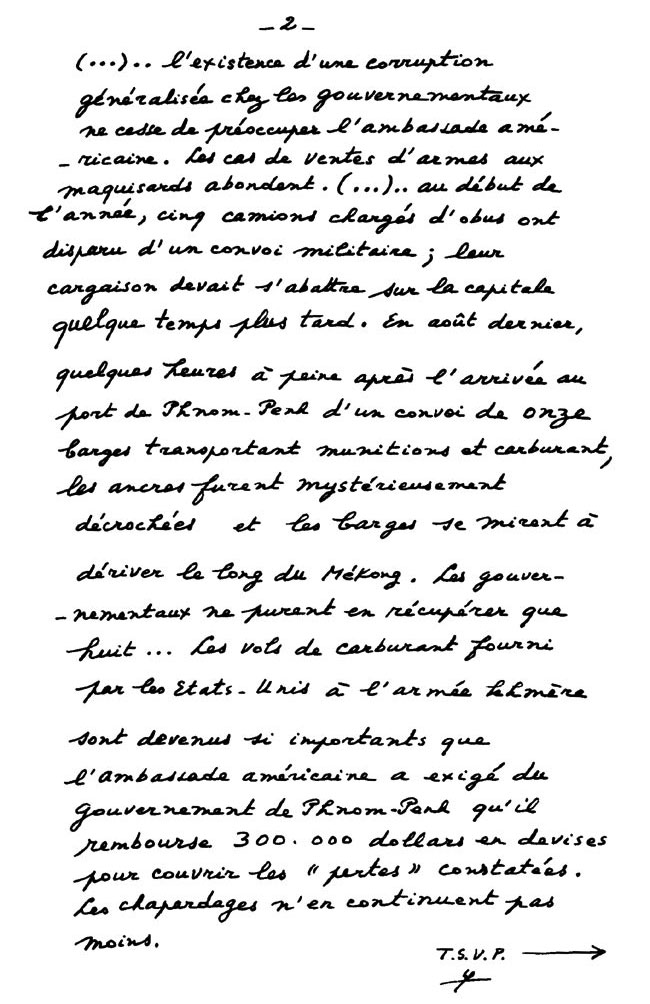 - 2 -
(...).. l'existence d'une corruption
généralisée chez les gouvernementaux
ne cesse de préoccuper l'ambassade amé-
- ricaine. Les cas de ventes d'armes aux
maquisards abondent. (...).. au début de
l'année, cinq camions chargés d'obus ont
disparu d'un convoi militaire ; leur
cargaison devait s'abattre sur la capitale
quelque temps plus tard. En août dernier,
quelques heures à peine après l'arrivée au
port de Phnom-Penh d'un convoi de onze
barges transportant munitions et carburant,
les ancres furent mystérieusement
décrochées et les barges se mirent à
dériver le long du Mékong. Les gouver-
- nementaux ne purent en récupérer que
huit ... Les vols de carburant fourni
par les Etats-Unis à l'armée khmère
sont devenus si importants que
l'ambassade américaine a exigé du
gouvernement de Phnom-Penh qu'il
rembourse 300.000 dollars en devises
pour couvrir les " pertes " constatées.
Les chapardages n'en continuent pas
moins.
T.S.V.P. →